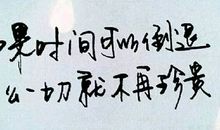 果时间可以倒退
么一切就不再珍贵